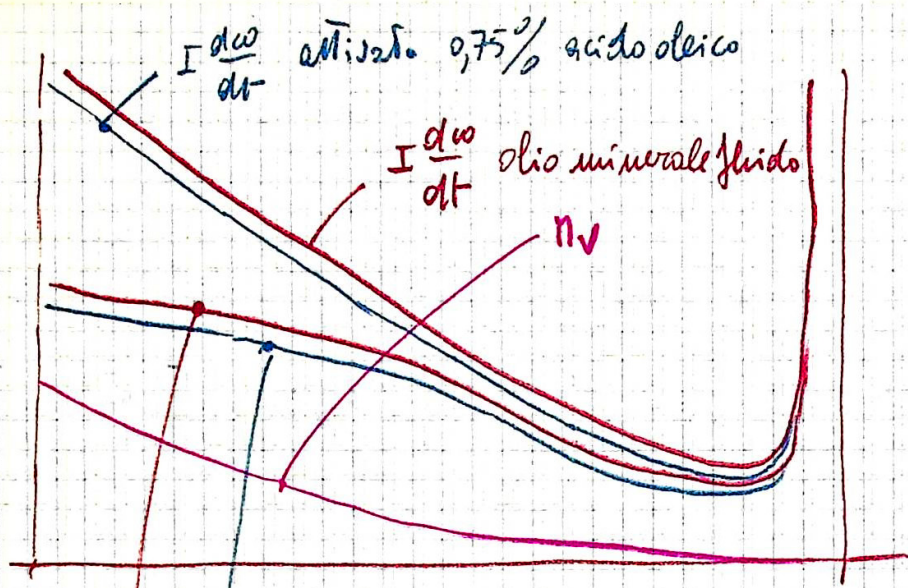 I dω/dt attivato 0,75% acido oleico
I dω/dt olio minerale fluido